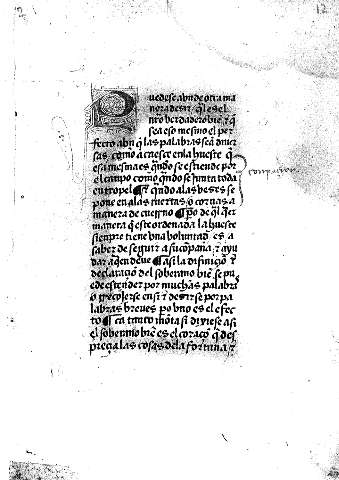 Puedese avn de otra ma
nera desir q̃l es el
nro berdadero biẽ ⁊ q̃
sea eso mesmo el per
fecto avn q̃ las palabras seã diuer
sas como acaesce en la hueste q̃
esa mesma es q̃ndo se estiende por
el canpo como q̃ndo se junta toda
en tropel ¶ ⁊ q̃ndo alas veses se
pone en alas fuertas o coruas a
manera de cuerno ¶ po de q̃l q̃er
manera q̃ este ordenada la hueste
sienpre tiene vna voluntad es a
saber de seguir a su conpaña ⁊ ayu
dar a q̃en deue ¶ asi la difiniciõ ⁊
declaraciõ del soberano biẽ se pu
ede estender por muchas palabras
o recolerse en si ⁊ desirse por pa
labras breues po vno es el efec
to ¶ ca tanto mõta si dixiese asi
el soberano biẽ es el coraçõ q̃ des
precia las cosas de la fortuna ⁊
conparaçion
12